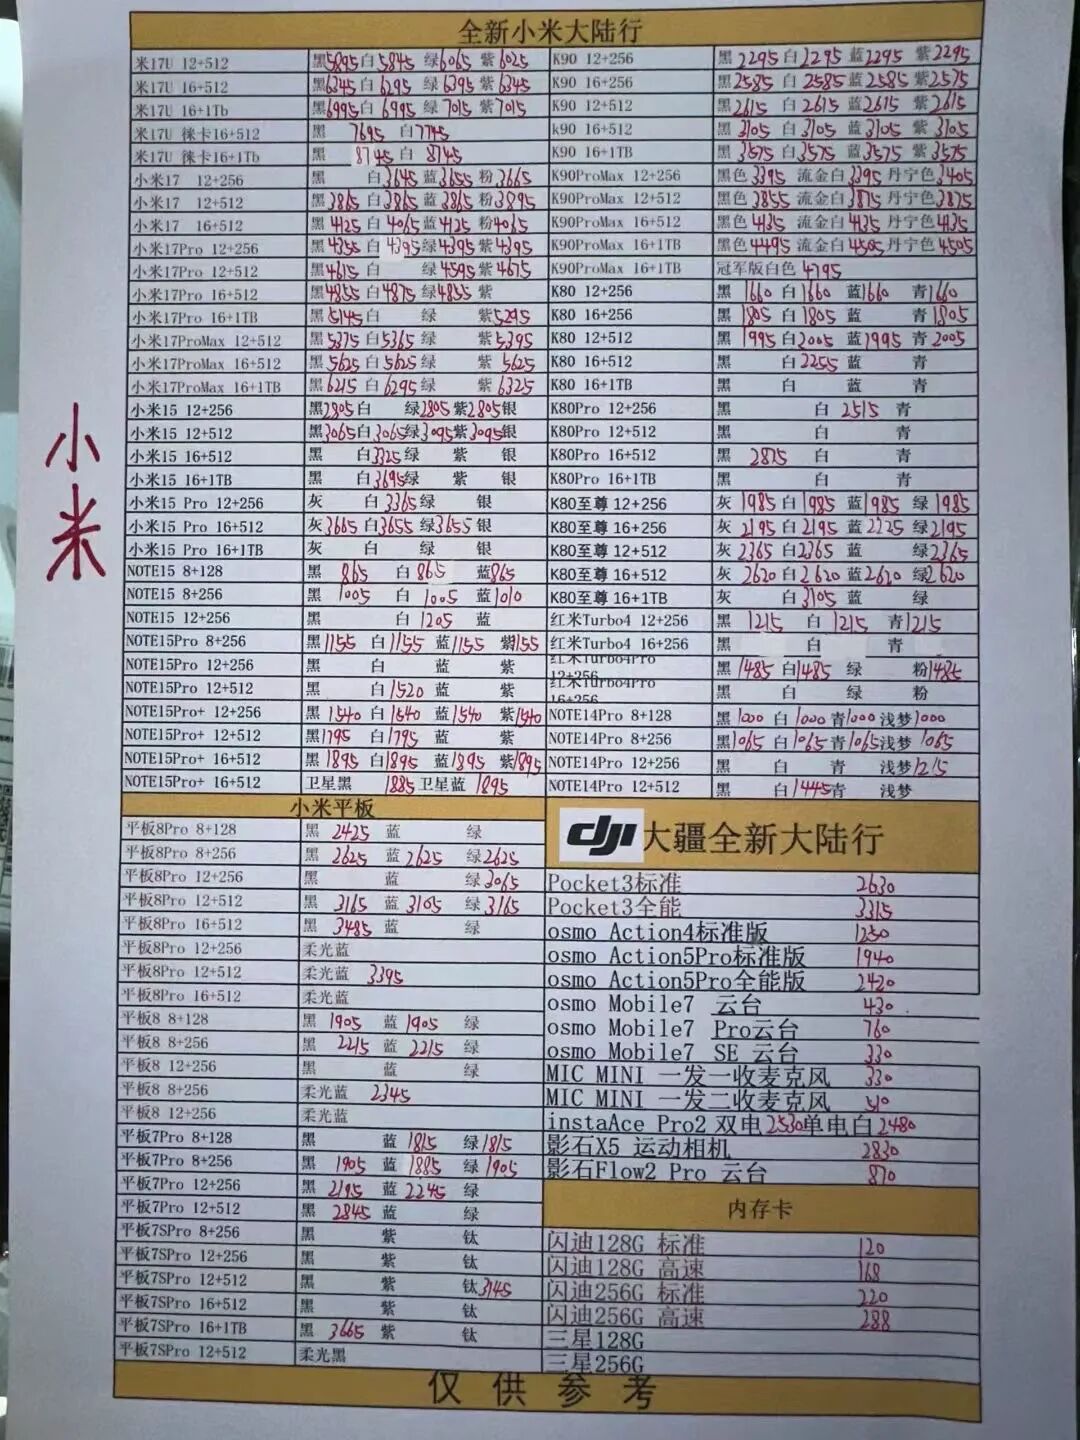 小米
全新小米大陆行
米17U 12+512 黑5895 白5845 绿6065 紫6025
米17U 16+512 黑6345 白6295 绿6395 紫6345
米17U 16+1Tb 黑6995 白6995 绿7015 紫7015
米17U 徕卡16+512 黑 7695 白7745
米17U 徕卡16+1Tb 黑 8745 白 8745
小米17 12+256 黑 白3645 蓝3655 粉3665
小米17 12+512 黑3865 白3865 蓝3865 粉3895
小米17 16+512 黑4125 白4065 蓝4125 粉4065
小米17Pro 12+256 黑4355 白4395 绿4395 紫4395
小米17Pro 12+512 黑4615 白 绿4595 紫4675
小米17Pro 16+512 黑4855 白4875 绿4855 紫
小米17Pro 16+1TB 黑5145 白 绿 紫5215
小米17ProMax 12+512 黑5375 白5365 绿 紫5395
小米17ProMax 16+512 黑5625 白5625 绿 紫5625
小米17ProMax 16+1TB 黑6215 白6295 绿 紫6325
小米15 12+256 黑2805 白 绿2805 紫2805 银
小米15 12+512 黑3065 白3065 绿3095 紫3095 银
小米15 16+512 黑 白3325 绿 紫 银
小米15 16+1TB 黑 白3695 绿 紫 银
小米15 Pro 12+256 灰 白3365 绿 银
小米15 Pro 16+512 灰3665 白3655 绿3655 银
小米15 Pro 16+1TB 灰 白 绿 银
NOTE15 8+128 黑 865 白 865 蓝865
NOTE15 8+256 黑 1005 白 1005 蓝1010
NOTE15 12+256 黑 白1205 蓝
NOTE15Pro 8+256 黑1155 白1155 蓝1155 紫1155
NOTE15Pro 12+256 黑 白 蓝 紫
NOTE15Pro 12+512 黑 白1520 蓝 紫
NOTE15Pro+ 12+256 黑1540 白1540 蓝1540 紫1540
NOTE15Pro+ 12+512 黑1795 白1795 蓝 紫
NOTE15Pro+ 16+512 黑1895 白1895 蓝1895 紫1895
NOTE15Pro+ 16+512 卫星黑 1885 卫星蓝 1895
K90 12+256 黑2295 白2295 蓝2295 紫2295
K90 16+256 黑2585 白2585 蓝2585 紫2575
K90 12+512 黑2615 白2615 蓝2615 紫2615
k90 16+512 黑3105 白3105 蓝3105 紫3105
K90 16+1TB 黑3575 白3575 蓝3575 紫3575
K90ProMax 12+256 黑色3395 流金白3395 丹宁色3405
K90ProMax 12+512 黑色3855 流金白3875 丹宁色3875
K90ProMax 16+512 黑色4135 流金白4135 丹宁色4135
K90ProMax 16+1TB 黑色4495 流金白4505 丹宁色4505
K90ProMax 16+1TB 冠军版白色 4795
K80 12+256 黑1660 白1660 蓝1660 青1660
K80 16+256 黑1805 白1805 蓝 青1805
K80 12+512 黑1995 白2005 蓝1995 青2005
K80 16+512 黑 白2255 蓝 青
K80 16+1TB 黑 白 蓝 青
K80Pro 12+256 黑 白 2515 青
K80Pro 12+512 黑 白 青
K80Pro 16+512 黑 2875 白 青
K80Pro 16+1TB 黑 白 青
K80至尊 12+256 灰1985 白1985 蓝1985 绿1985
K80至尊 16+256 灰2195 白2195 蓝2225 绿2195
K80至尊 12+512 灰2365 白2365 蓝 绿2365
K80至尊 16+512 灰2620 白2620 蓝2620 绿2620
K80至尊 16+1TB 灰 白3105 蓝 绿
红米Turbo4 12+256 黑1215 白1215 青1215
红米Turbo4 16+256 黑 白 青
红米Turbo4Pro 12+256 黑1485 白1485 绿 粉1485
红米Turbo4Pro 16+256 黑 白 绿 粉
NOTE14Pro 8+128 黑1000 白1000 青1000 浅梦1000
NOTE14Pro 8+256 黑1065 白1065 青1065 浅梦1065
NOTE14Pro 12+256 黑 白 青 浅梦1215
NOTE14Pro 12+512 黑 白1445 青 浅梦
小米平板
平板8Pro 8+128 黑 2425 蓝 绿
平板8Pro 8+256 黑 2625 蓝2625 绿2625
平板8Pro 12+256 黑 蓝 绿3065
平板8Pro 12+512 黑 3165 蓝3105 绿3165
平板8Pro 16+512 黑 3485 蓝 绿
平板8Pro 12+256 柔光蓝
平板8Pro 12+512 柔光蓝 3395
平板8Pro 16+512 柔光蓝
平板8 8+128 黑 1905 蓝1905 绿
平板8 8+256 黑 2215 蓝2215 绿
平板8 12+256 黑 蓝 绿
平板8 8+256 柔光蓝 2345
平板8 12+256 柔光蓝
平板7Pro 8+128 黑 蓝1815 绿1815
平板7Pro 8+256 黑 1905 蓝1885 绿1905
平板7Pro 12+256 黑 2195 蓝2245 绿
平板7Pro 12+512 黑 2845 蓝 绿
平板7SPro 8+256 黑 紫 钛
平板7SPro 12+256 黑 紫 钛
平板7SPro 12+512 黑 紫 钛3145
平板7SPro 16+512 黑 紫 钛
平板7SPro 16+1TB 黑 3665 紫 钛
平板7SPro 12+512 柔光黑
dji大疆全新大陆行
Pocket3标准 2630
Pocket3全能 3315
osmo Action4标准版 1250
osmo Action5Pro标准版 1940
osmo Action5Pro全能版 2420
osmo Mobile7 云台 430
osmo Mobile7 Pro云台 760
osmo Mobile7 SE 云台 330
MIC MINI 一发一收麦克风 330
MIC MINI 一发二收麦克风 510
instaAce Pro2 双电2530单电白2480
影石X5 运动相机 2830
影石Flow2 Pro 云台 870
内存卡
闪迪128G 标准 120
闪迪128G 高速 168
闪迪256G 标准 220
闪迪256G 高速 288
三星128G
三星256G
仅供参考